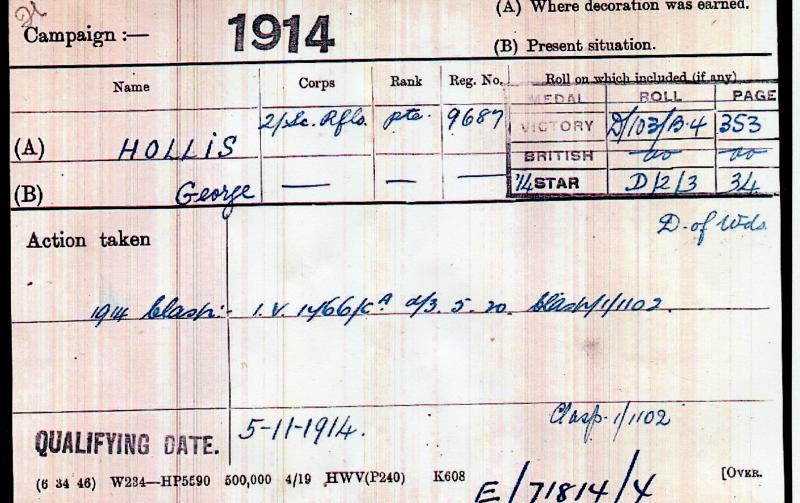 (A) Where decoration was earned.
Campaign :— 1914
(B) Present situation.
Name Corps Rank Reg. No. Roll on which included (if any)
MEDAL ROLL PAGE
(A) HOLLIS 2/Sc. Rfls. pte. 9687 VICTORY D/103/B.4 353
BRITISH do do
(B) George — — — 14 STAR D/2/3 34
Action taken D. of Wds.
1914 Clasp:- I.V. d/3. 5. 20. Clasp/1/1102.
QUALIFYING DATE. 5-11-1914. Clasp. 1/1102
(6 34 46) W234—HP5590 500,000 4/19 HWV(P240) K608 [OVER.
E/71814/4